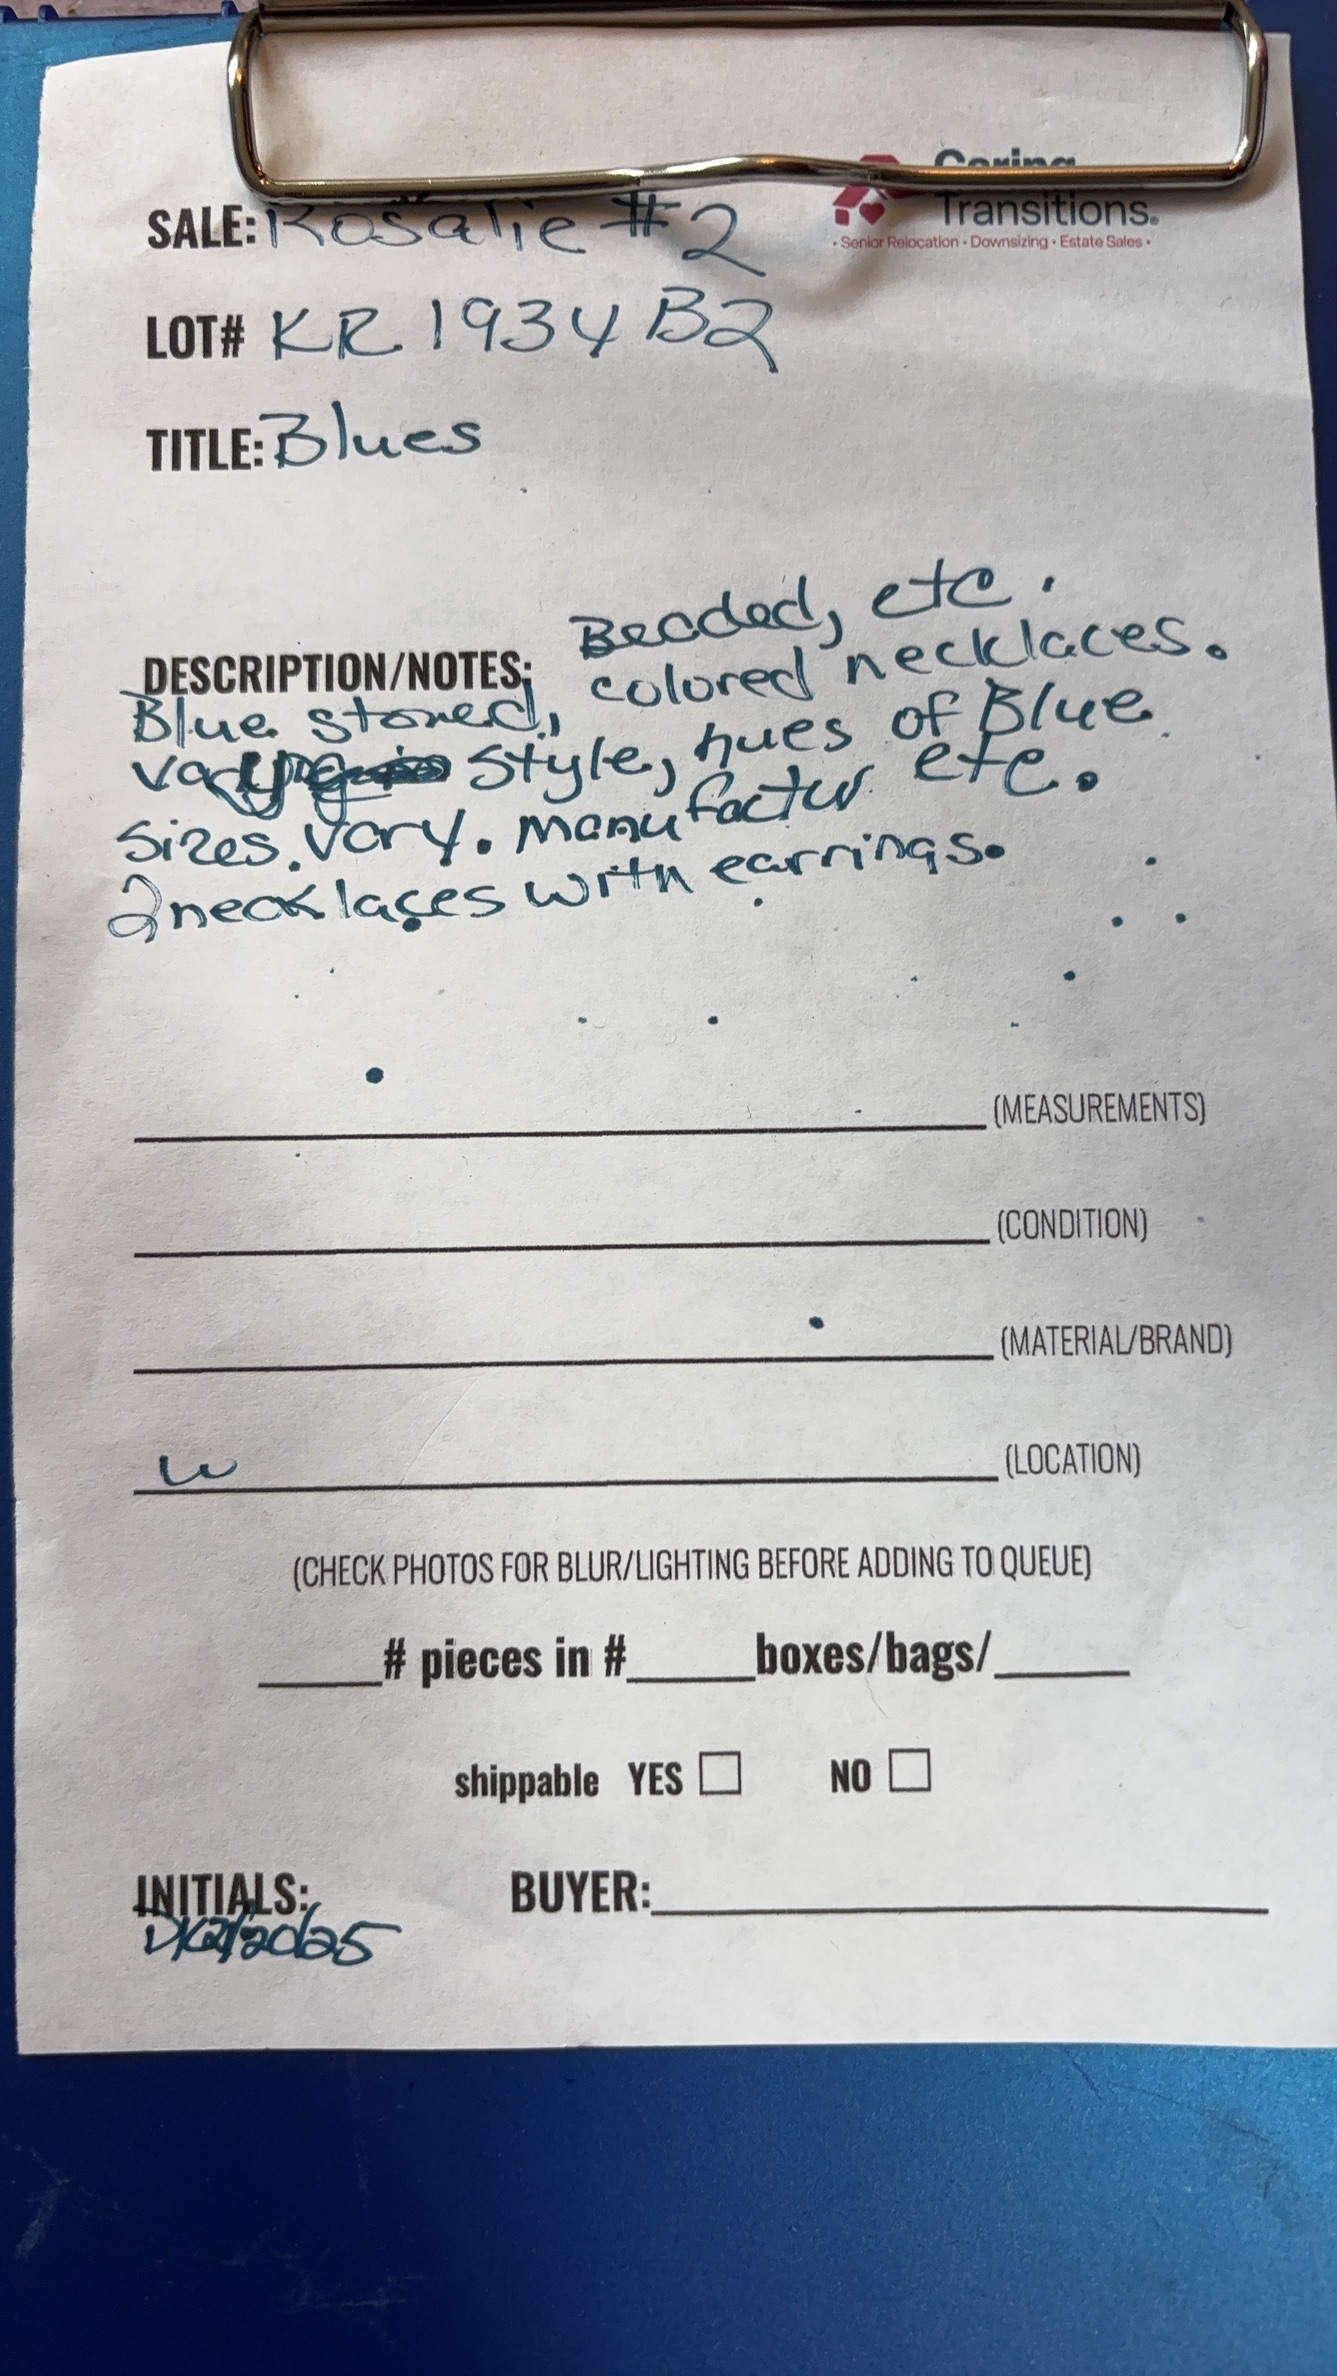 Caring
Transitions.
• Senior Relocation • Downsizing • Estate Sales •
SALE: Rosalie #2
LOT# KR 1934 B2
TITLE: Blues
Beaded, etc.
DESCRIPTION/NOTES:
Blue stoned, colored necklaces.
vary style, hues of Blue
sizes vary. manufactur etc.
2 necklaces with earrings.
(MEASUREMENTS)
(CONDITION)
(MATERIAL/BRAND)
W (LOCATION)
(CHECK PHOTOS FOR BLUR/LIGHTING BEFORE ADDING TO QUEUE)
# pieces in # boxes/bags/
shippable YES NO
INITIALS: BUYER: